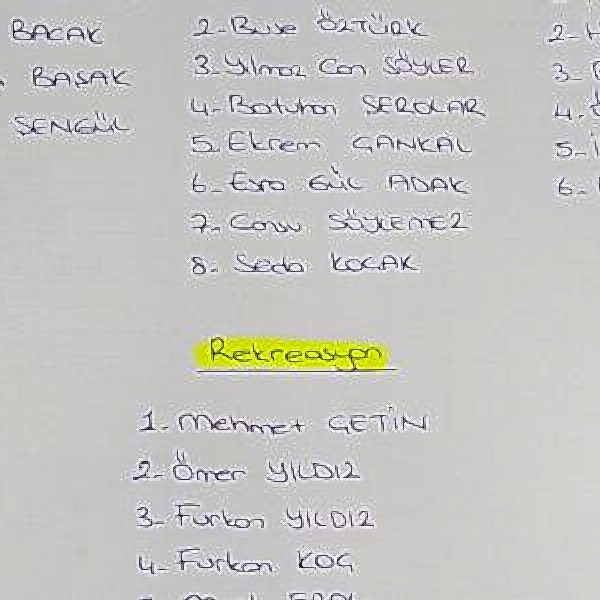 BACAK
BAŞAK
ŞENGÜL
2- Buse ÖZTÜRK
3- Yılmaz Can SÖYLER
4- Batuhan SEROLAR
5. Ekrem ÇANKAL
6- Esra GÜL ADAK
7- Cansu SÖYLEMEZ
8- Seda KOÇAK
2-
3-
4.
5-
6-
Rekreasyon
1- Mehmet ÇETİN
2- Ömer YILDIZ
3- Furkan YILDIZ
4- Furkan KOÇ